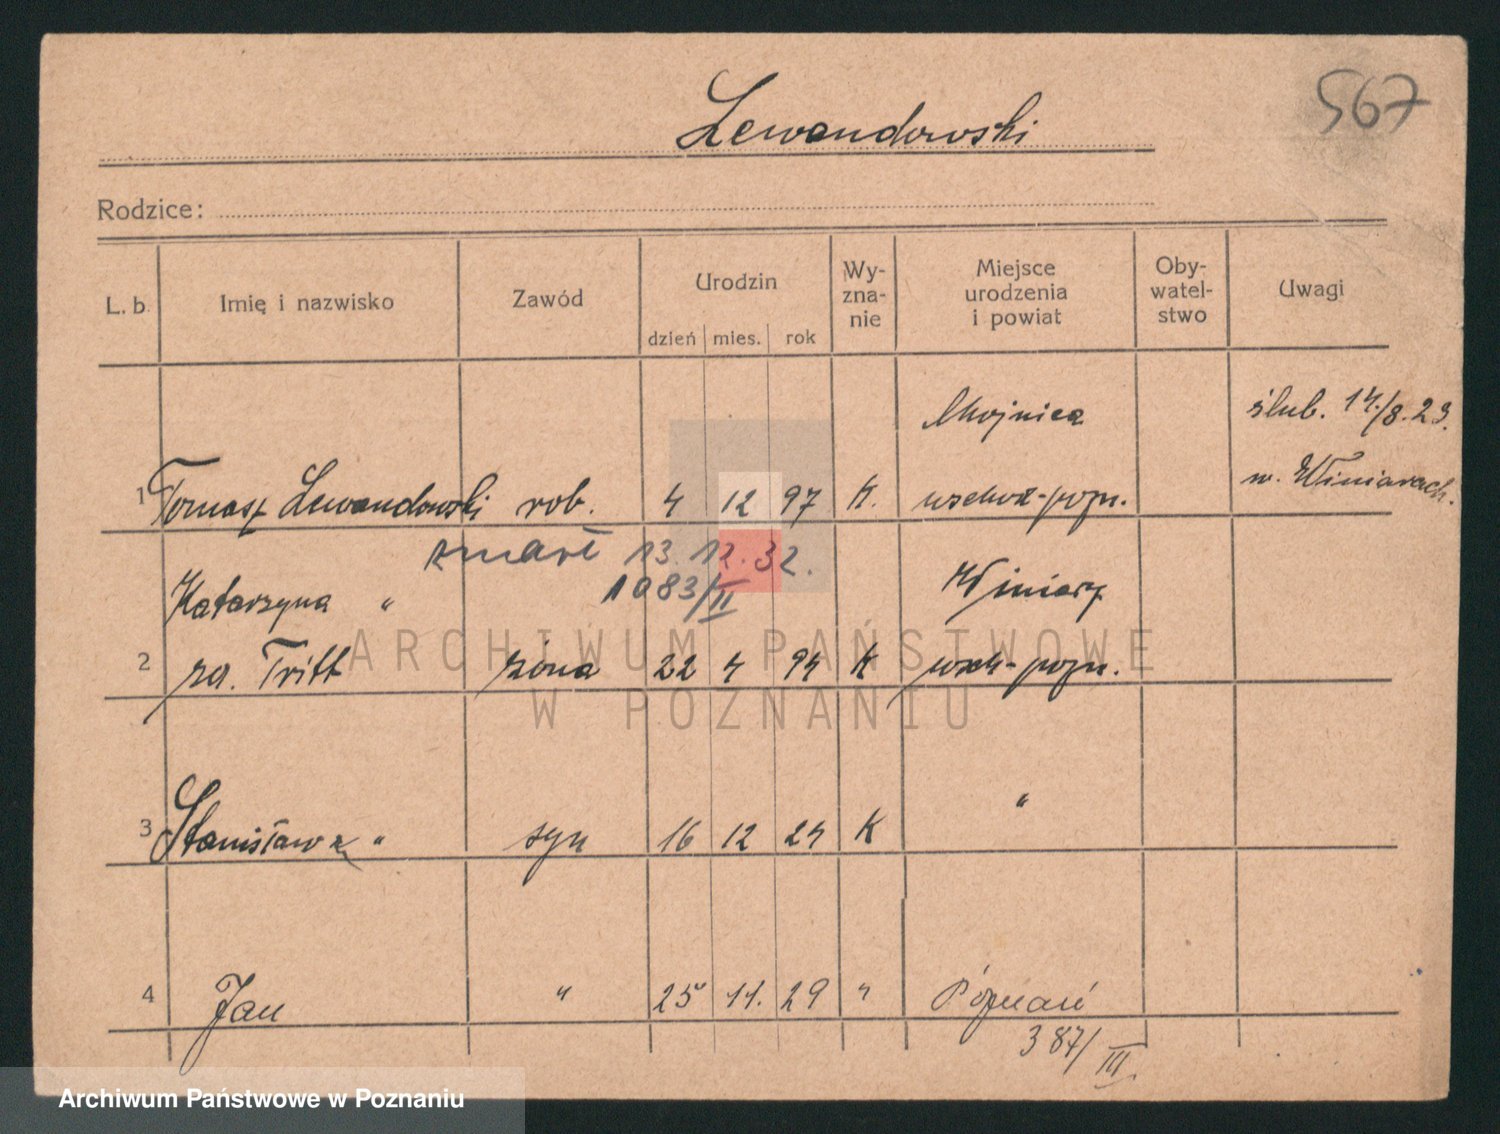 567
Lewandowski
Rodzice:
L. b. Imię i nazwisko Zawód Urodzin dzień mies. rok Wy-zna-nie Miejsce urodzenia i powiat Oby-watel-stwo Uwagi
Chojnica ślub. 14./8.23.
1 Tomasz Lewandowski rob. 4 12 97 K. wschod-pozn. w. Winiarach.
zmarł 13.12.32.
1083/II
Katarzyna " Winiary
2 za. Tritt żona 22 4 94 K wsch-pozn.
3 Stanisław " syn 16 12 24 K "
4 Jan " 25 11. 29 " Poznań
387/III
ARCHIWUM PAŃSTWOWE
W POZNANIU
Archiwum Państwowe w Poznaniu